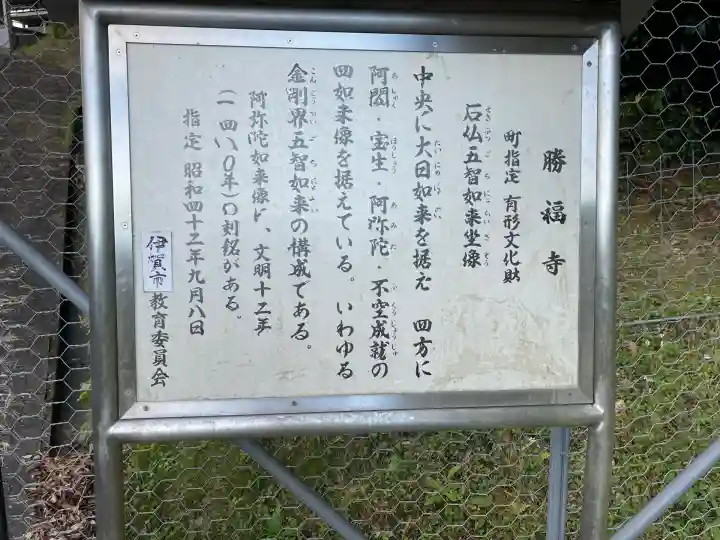 勝福寺
町指定 有形文化財
石仏五智如来坐像
中央に大日如来を据え 四方に
阿閦・宝生・阿弥陀・不空成就の
四如来像を据えている。いわゆる
金剛界五智如来の構成である。
阿弥陀如来像に、文明十二年
(一四八〇年)の刻銘がある。
指定 昭和四十二年九月八日
伊賀市教育委員会